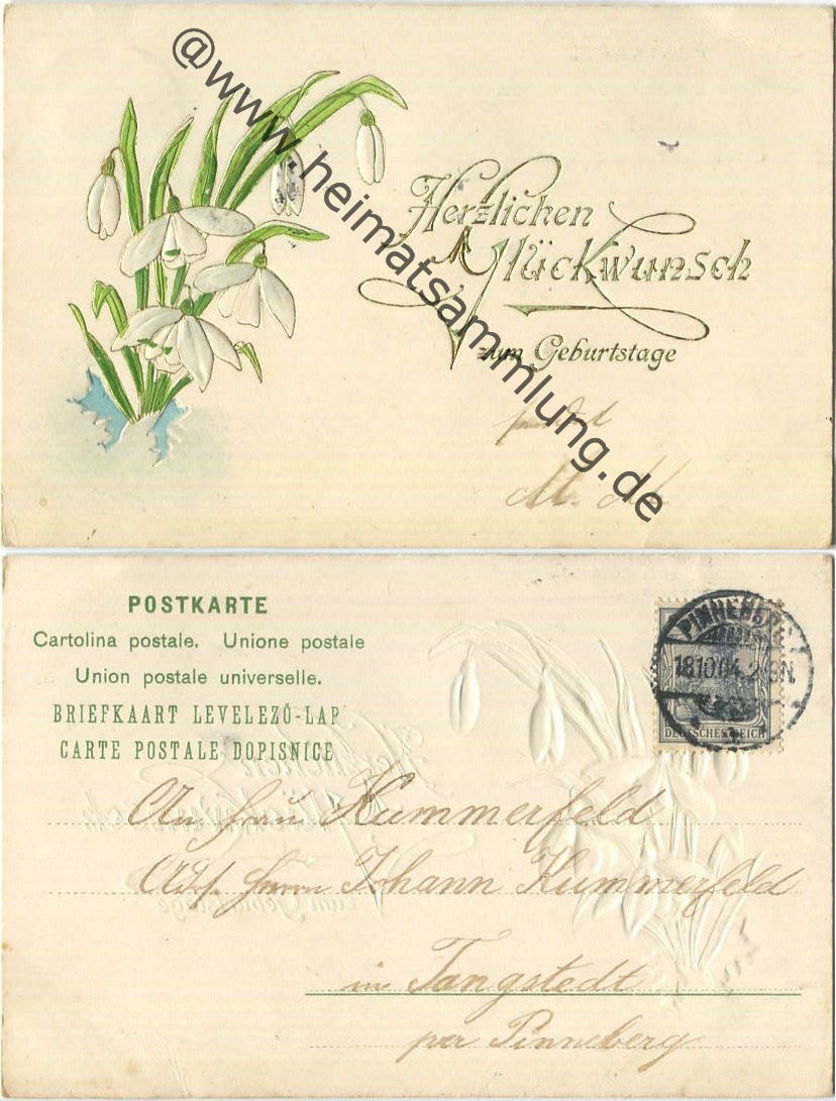 @www.heimatsammlung.de
Herzlichen
Glückwunsch
zum Geburtstage
M. M.
POSTKARTE
Cartolina postale. Unione postale
Union postale universelle.
BRIEFKAART LEVELEZŐ-LAP
CARTE POSTALE DOPISNICE
PINNEBERG
18.10.04. 2-3N
DEUTSCHES REICH
An Frau Kummerfeld
Adr. Herrn Johann Kummerfeld
in Tangstedt
per Pinneberg